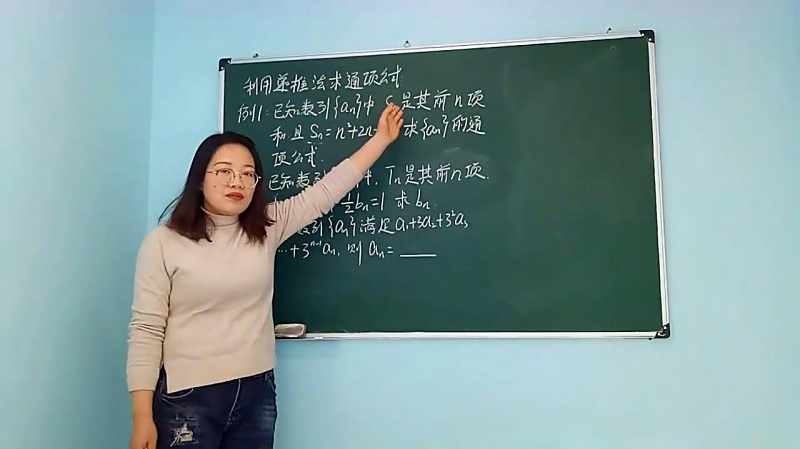 利用递推法求通项公式
例1:已知数列{an}中 S 是其前n项
和且Sn=n²+2n- 求{an}的通
项公式.
已知数列 中,Tn是其前n项.
½bn=1 求bn
数列{an}满足a1+3a2+3²a3
…+3ⁿ⁻¹an, 则an=____